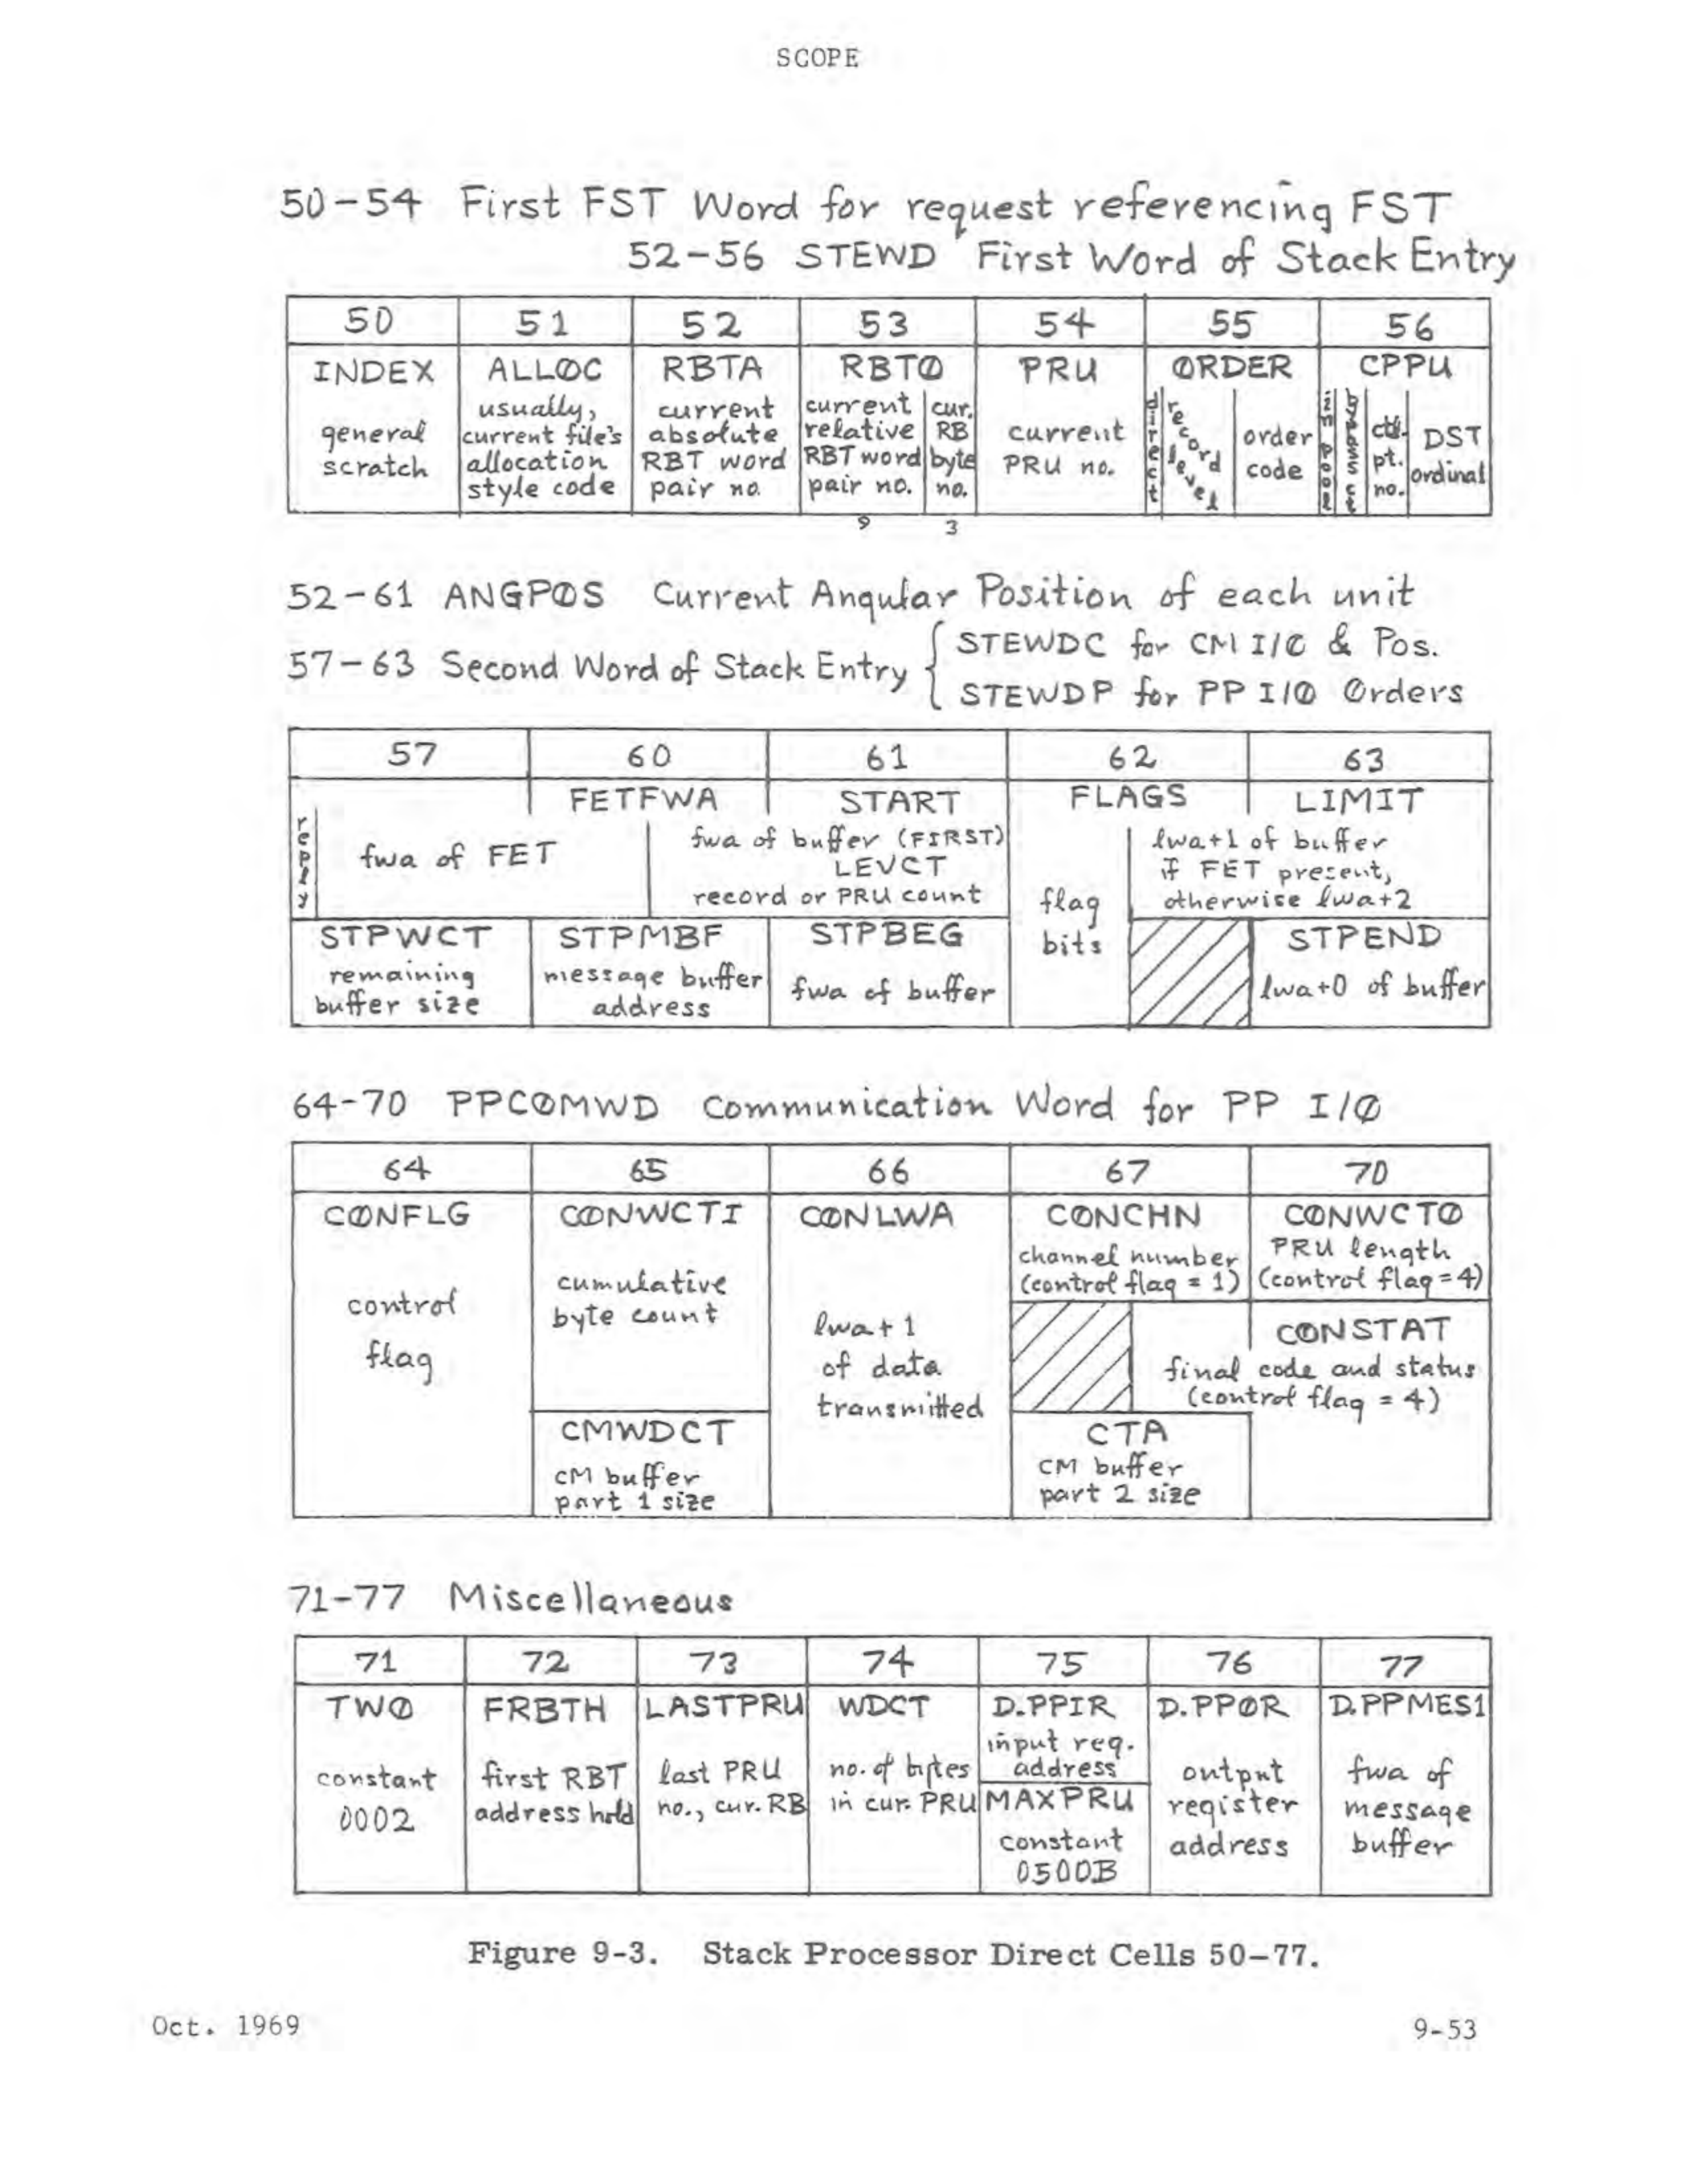 SCOPE
50-54 First FST Word for request referencing FST
52-56 STEWD First Word of Stack Entry
50 51 52 53 54 55 56
INDEX ALLØC RBTA RBTØ PRU ØRDER CPPU
general scratch
usually, current file's allocation style code
current absolute RBT word pair no.
current relative RBT word pair no.
cur. RB byte no.
current PRU no.
direct
record level
order code
in pool
ctl. pt. no.
DST ordinal
9 3
52-61 ANGPØS Current Angular Position of each unit
57-63 Second Word of Stack Entry
STEWDC for CM I/O & Pos.
STEWDP for PP I/Ø Orders
57 60 61 62 63
FETFWA START FLAGS LIMIT
reply
fwa of FET
fwa of buffer (FIRST)
LEVCT
record or PRU count
flag bits
lwa+1 of buffer
if FET present,
otherwise lwa+2
STPWCT STPMBF STPBEG STPEND
remaining buffer size
message buffer address
fwa of buffer
lwa+0 of buffer
64-70 PPCØMWD Communication Word for PP I/Ø
64 65 66 67 70
CØNFLG CØNWCTI CØNLWA CØNCHN CØNWCTØ
control flag
cumulative byte count
lwa+1 of data transmitted
channel number
(control flag = 1)
PRU length
(control flag = 4)
CØNSTAT
final code and status
(control flag = 4)
CMWDCT
CM buffer
part 1 size
CTA
CM buffer
part 2 size
71-77 Miscellaneous
71 72 73 74 75 76 77
TWØ FRBTH LASTPRU WDCT D.PPIR D.PPØR D.PPMES1
constant 0002
first RBT address hold
last PRU no., cur. RB
no. of bytes in cur. PRU
input req. address
MAXPRU
constant
0500B
output register address
fwa of message buffer
Figure 9-3. Stack Processor Direct Cells 50-77.
Oct. 1969
9-53